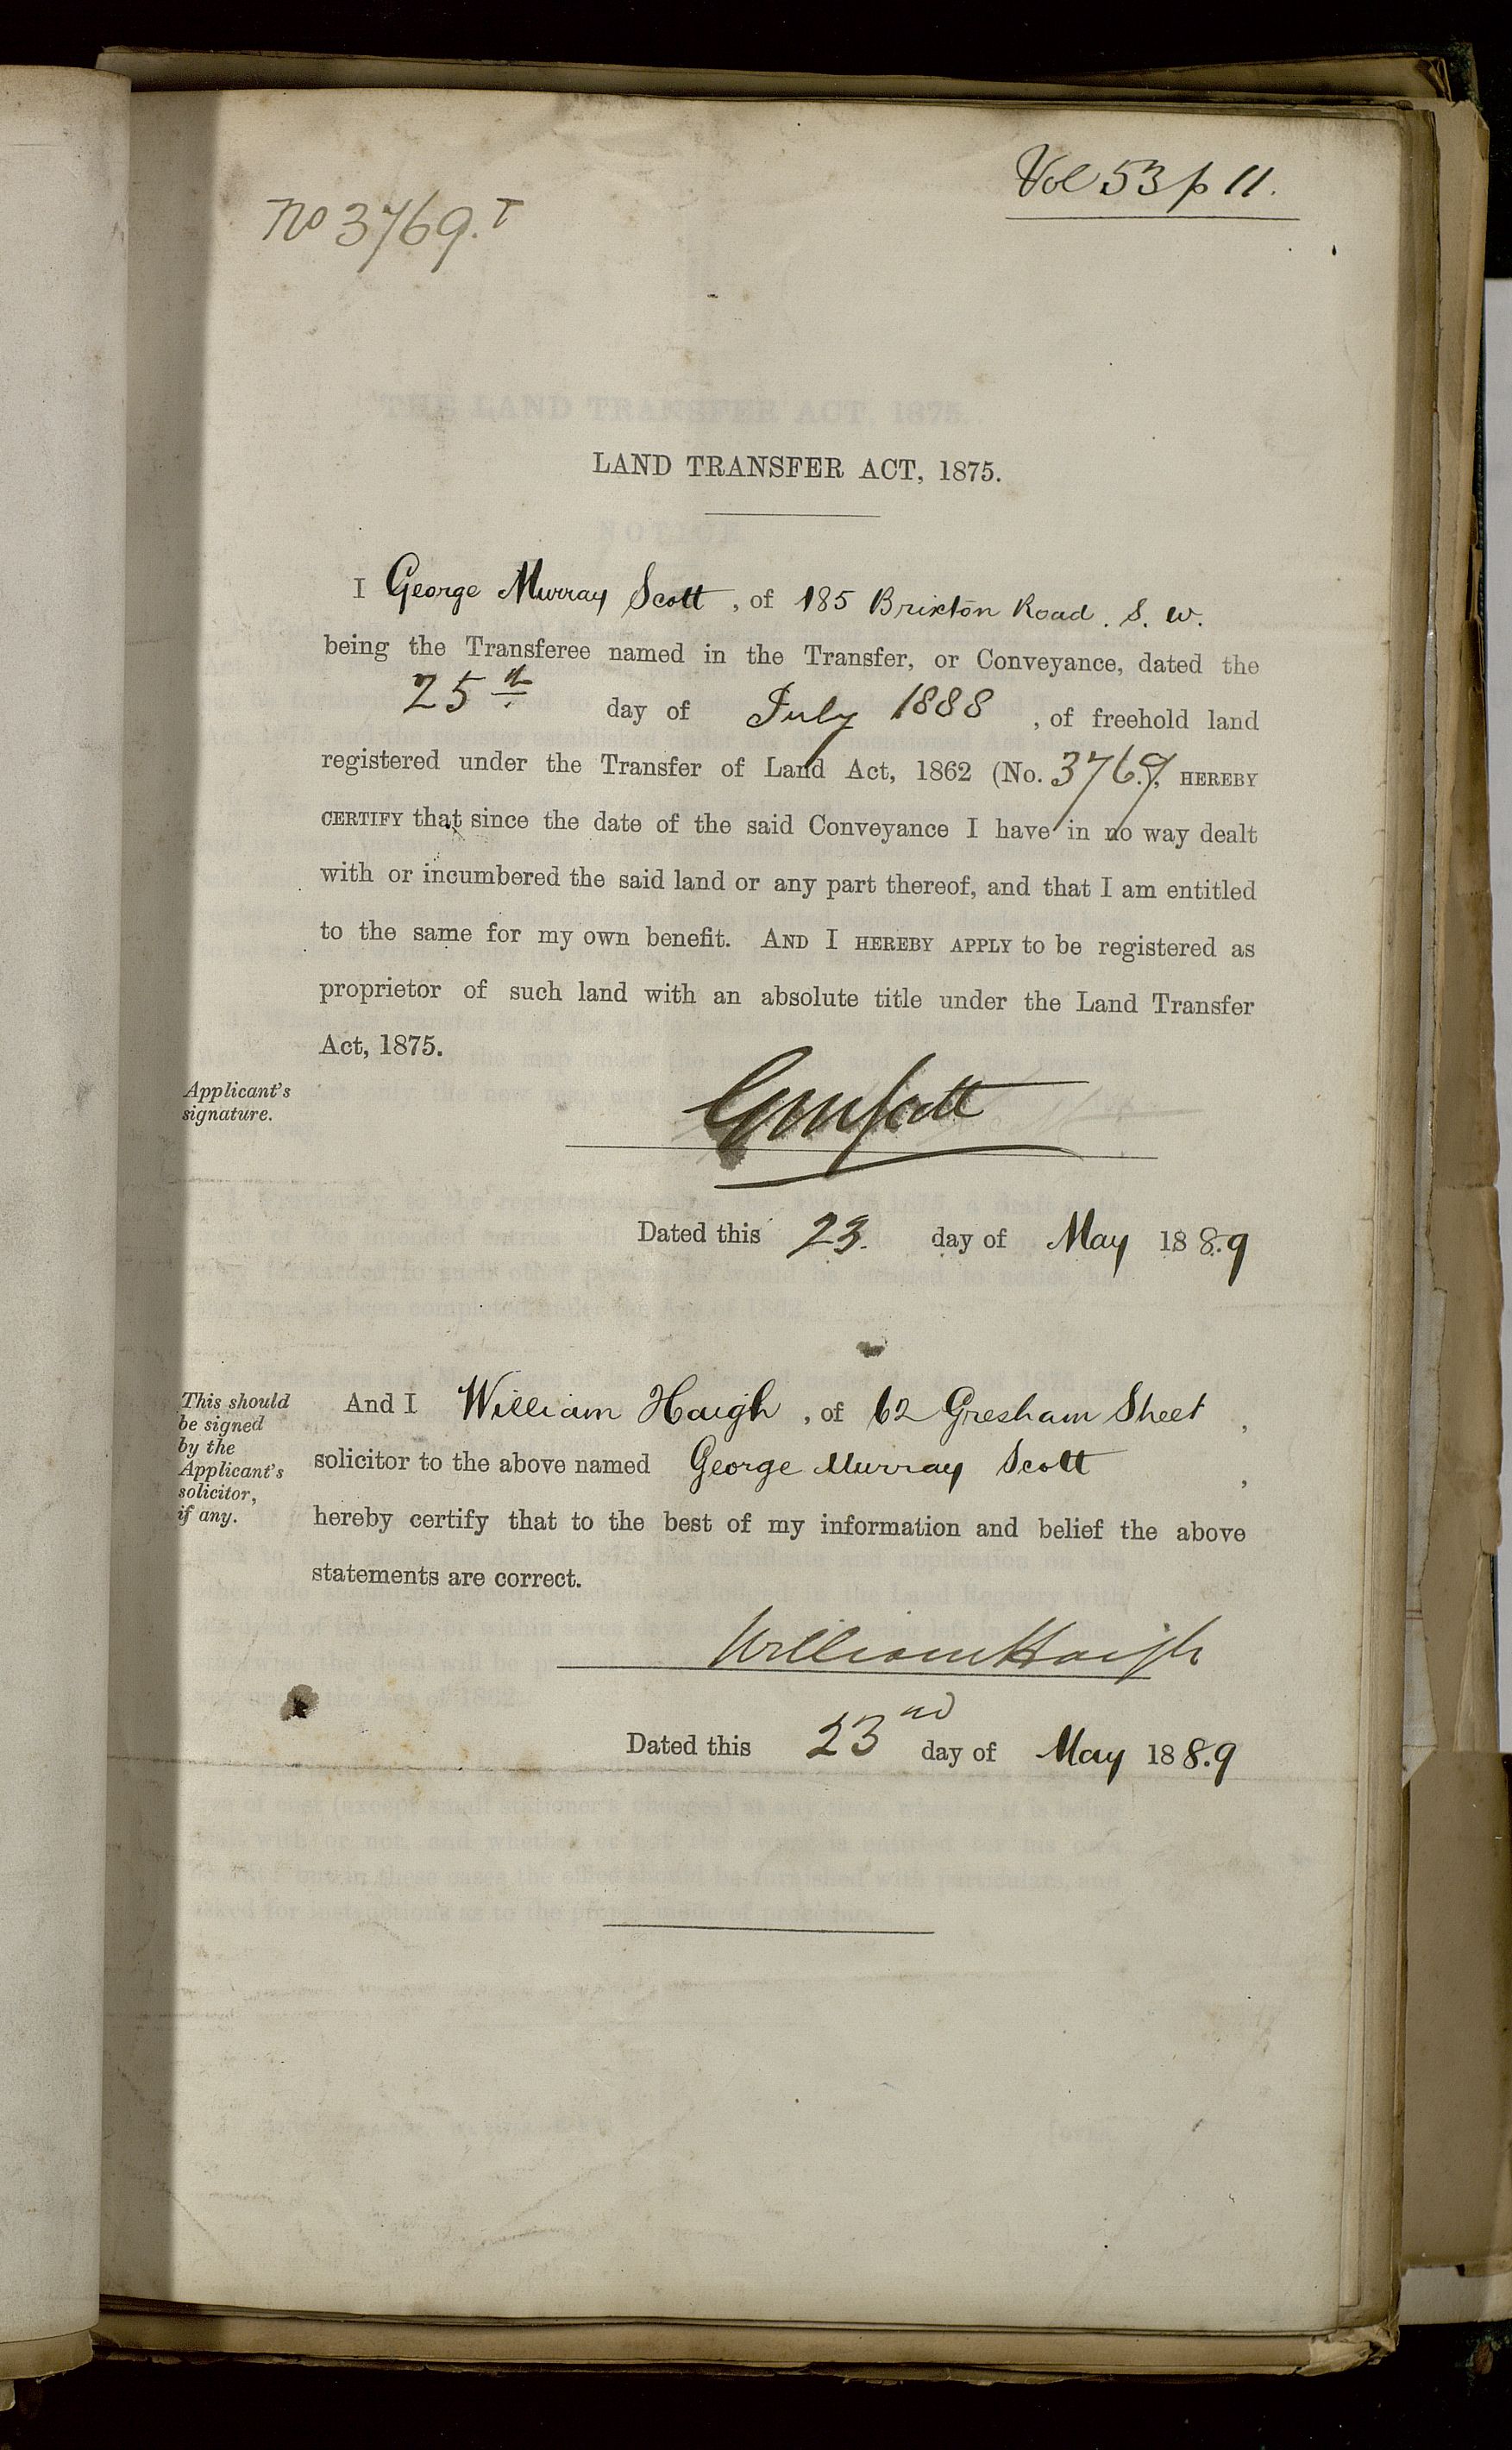 Vol 53 p 11.
No 3769.T
LAND TRANSFER ACT, 1875.
I George Murray Scott, of 185 Brixton Road. S. W.
being the Transferee named in the Transfer, or Conveyance, dated the
25th day of July 1888, of freehold land
registered under the Transfer of Land Act, 1862 (No. 3769), HEREBY
CERTIFY that since the date of the said Conveyance I have in no way dealt
with or incumbered the said land or any part thereof, and that I am entitled
to the same for my own benefit. AND I HEREBY APPLY to be registered as
proprietor of such land with an absolute title under the Land Transfer
Act, 1875.
Applicant's
signature.
GMScott
Dated this 23. day of May 188.9
This should
be signed
by the
Applicant's
solicitor,
if any.
And I William Haigh, of 62 Gresham Street,
solicitor to the above named George Murray Scott,
hereby certify that to the best of my information and belief the above
statements are correct.
William Haigh
Dated this 23nd day of May 188.9